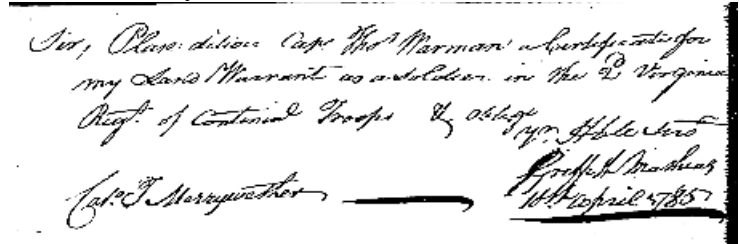 Sir, Pleas. deliver Cap. Thos Warman a Certificate for
my Land Warrant as a soldier in the 2d Virginia
Regt. of Continal Troops & oblige
yr. Hble Servt
Griffith
Capt. T Merryweather 10th April 1785